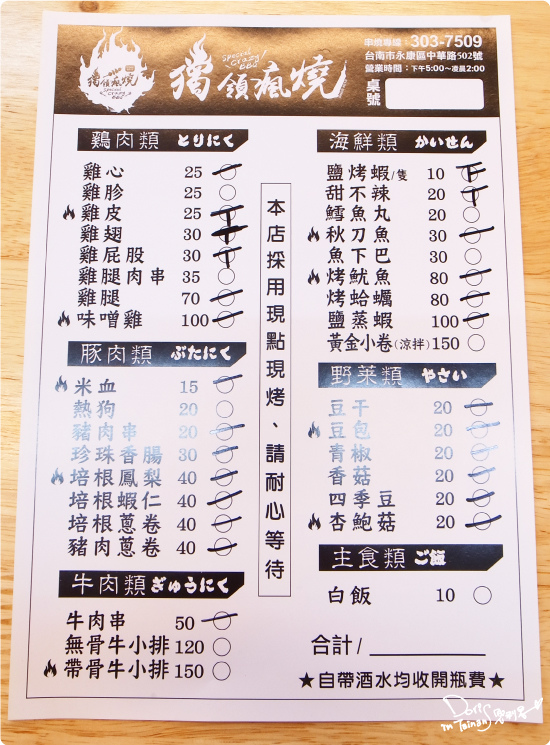 獨領瘋燒
Special
Crazy!
BBQ
獨領瘋燒
Special
Crazy!
BBQ
串燒專線：303-7509
台南市永康區中華路502號
營業時間：下午5:00～凌晨2:00
桌號
鷄肉類 とりにく
雞心 25
雞胗 25
雞皮 25
雞翅 30
雞屁股 30
雞腿肉串 35
雞腿 70
味噌雞 100
豚肉類 ぶたにく
米血 15
熱狗 20
豬肉串 20
珍珠香腸 30
培根鳳梨 40
培根蝦仁 40
培根蔥卷 40
豬肉蔥卷 40
牛肉類 ぎゅうにく
牛肉串 50
無骨牛小排 120
帶骨牛小排 150
本店採用現點現烤、請耐心等待
海鮮類 かいせん
鹽烤蝦/隻 10
甜不辣 20
鱈魚丸 20
秋刀魚 30
魚下巴 30
烤魷魚 80
烤蛤蠣 80
鹽蒸蝦 100
黃金小卷(涼拌) 150
野菜類 やさい
豆干 20
豆包 20
青椒 20
香菇 20
四季豆 20
杏鮑菇 20
主食類 ご飯
白飯 10
合計/
★自帶酒水均收開瓶費★
Doris
in Tainan